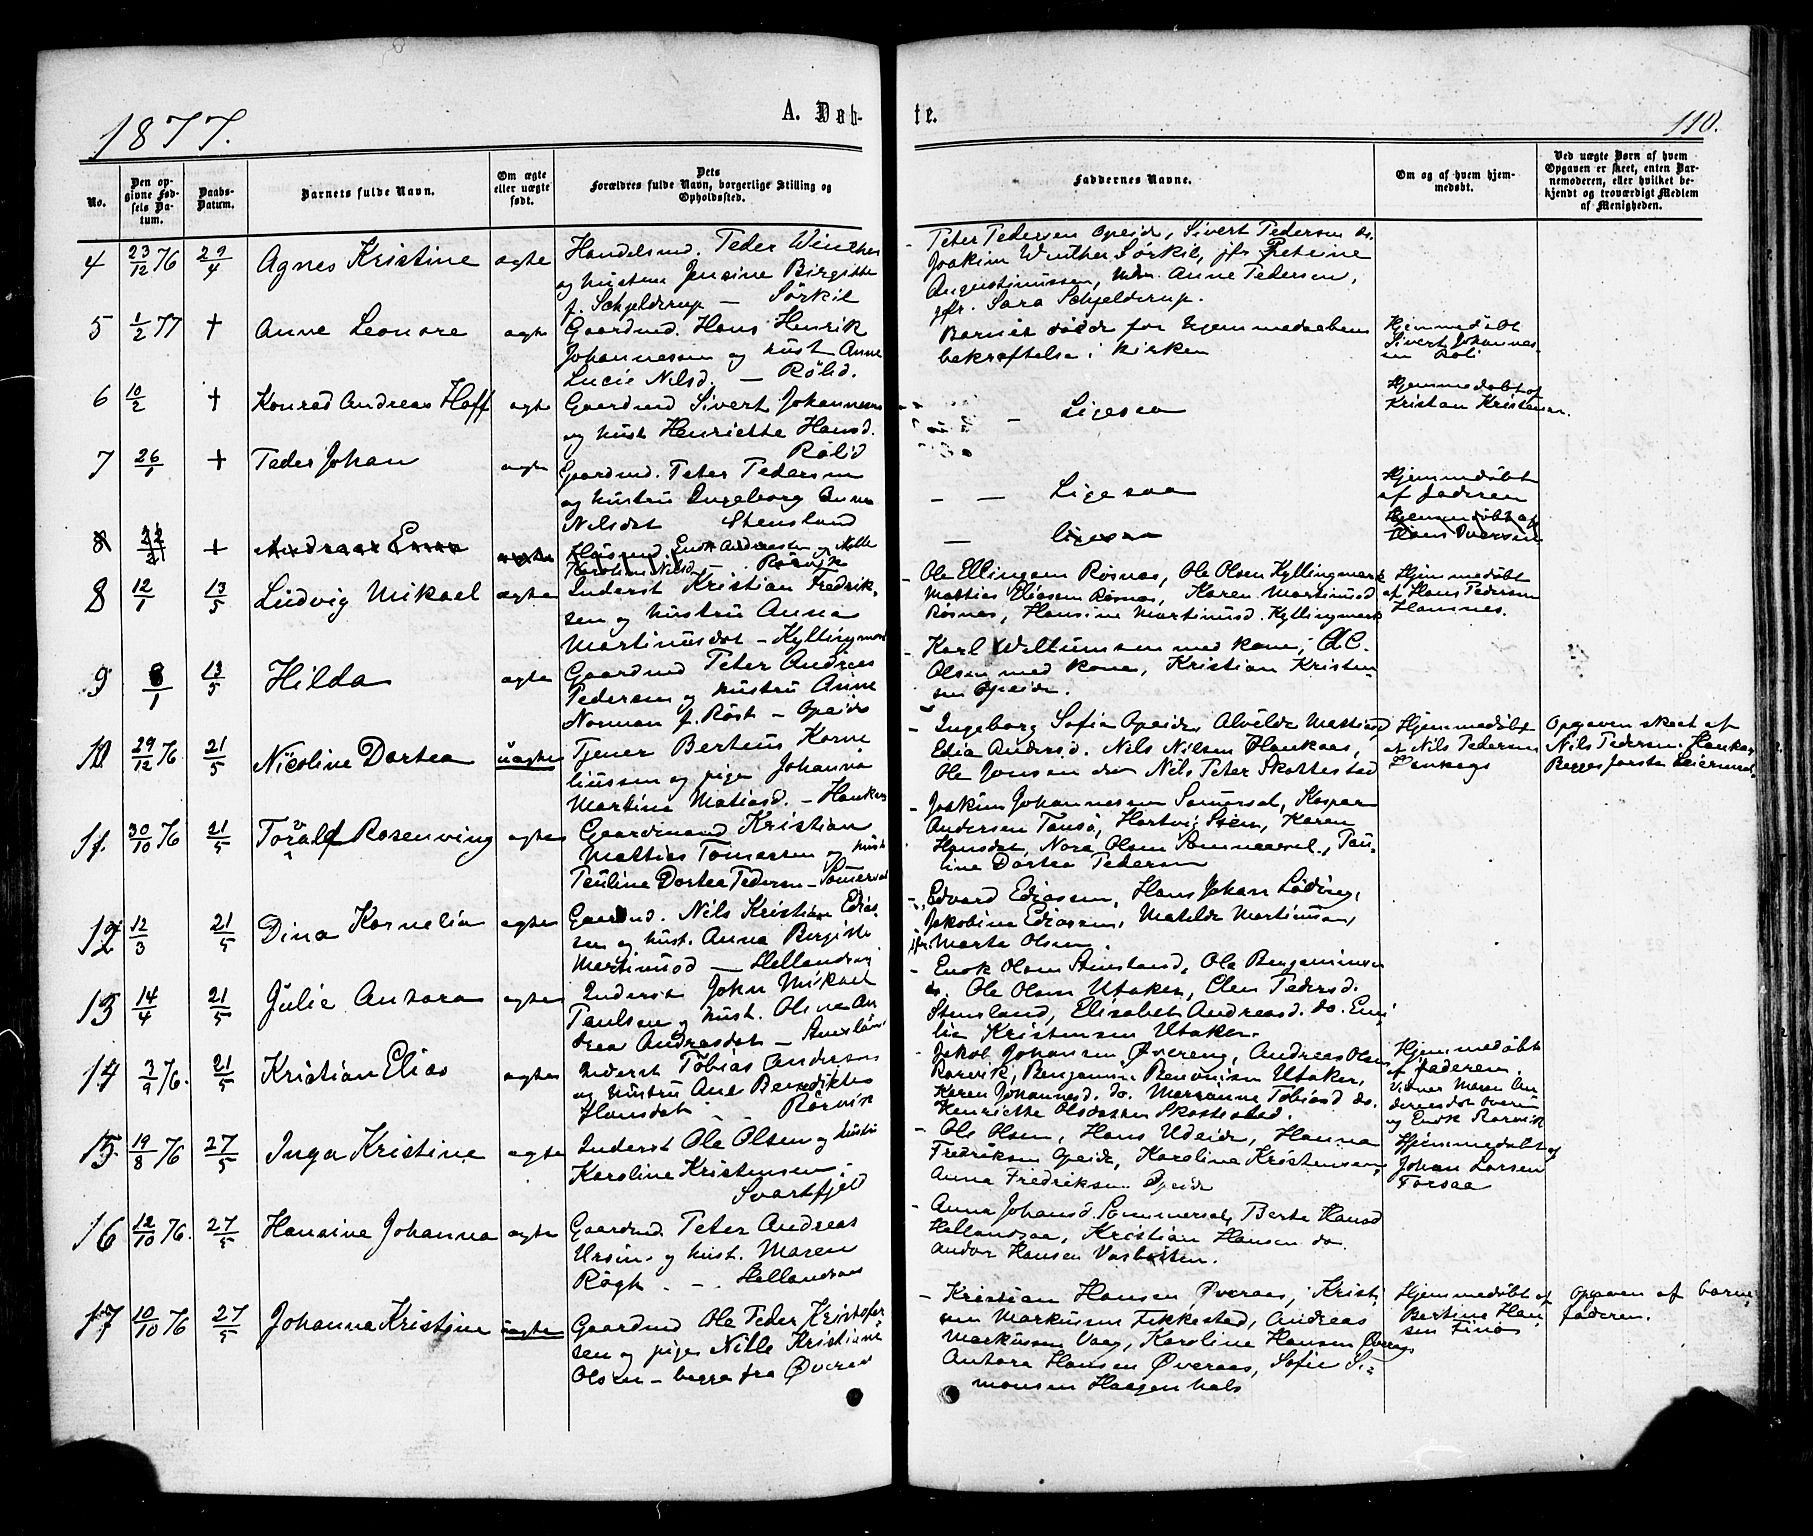 1877.
A. Døb-
te.
110.
No.
Den op-
givne Fød-
sels Da-
tum.
Daabs-
Datum.
Barnets fulde Navn.
Om ægte
eller uægte
født.
Dets
Forældres fulde Navn, borgerlige Stilling og
Opholdssted.
Faddernes Navne.
Om og af hvem hjem-
medøbt.
Ved uægte Børn af hvem
Opgaven er skeet, enten Bar-
nemoderen, eller hvilket be-
kjendt og troværdigt Medlem
af Menigheden.
4 23/12 76 29/4 Agnes Kristine ægte
Handelsmd. Peder Winther
og hustru Jensine Birgitte
f. Schjelderup — Sørkil
Peter Pedersen Opeide, Sivert Pedersen do.
Joakim Winther Sørkil, jfr Petrine
Augustinussen, Anne Pedersen,
jfr. Sara Schjelderup.
5 1/2 77 + Anne Leonore ægte
Gaardmd. Hans Henrik
Johannessen og hust Anne
Lucie Nilsd. — Rølid.
Barnet døde før hjemmedaabens
bekræftelse i kirken
Hjemmedøbt
Sivert Johannes-
en Roli
6 10/2 + Konrad Andreas Hoff ægte
Gaardmd Sivert Johannes
og hust Henriette Hansd.
Rølid
— Ligesaa
Hjemmedøbt af
Kristian Kristensen.
7 26/1 + Peder Johan ægte
Gaardmd. Peter Pedersen
og hustru Ingeborg Anna
Nilsdat Stensland
— — Ligesaa
Hjemmedøbt
af faderen
8 22/4 + Andreas ægte
Husmd. Enok Andreassen og
Karoline Nilsd. — Rørvik
— ligesaa
Hjemmedøbt af
Hans
8 12/1 13/5 Ludvig Mikael ægte
Inderst Kristian Fredrik-
sen og hustru Anna
Martinusdat — Kyllingmark
Ole Ellingsen Røsnæs, Ole Olsen Kyllingmark
Mattias Eliasen Røsnæs, Karen Martinusd
Røsnæs, Hansine Martinusd. Kyllingmark
Hjemmedøbt
af Hans Pedersen
Hamnes.
9 8/1 13/5 Hilda ægte
Gaardmd Peter Andreas
Pedersen og hustru Anne
Norman f. Røst — Opeide
Karl Wiltumsen med kone,
Olsen med kone, Kristian Kristen-
sen Opeide.
10 29/12 76 21/5 Nicoline Dortea uægte
Tjener Berteus Korne
liussen og pige Johanna
Martine Matiasd. — Haukaas
Ingeborg Sofia Opeide, Alvilde Mattiasd
Edia Andersd. Nils Nilsen Haukaas,
Ole Jonsen do Nils Peter Skottestad
Hjemmedøbt
af Nils Pedersen
Opgaven skeet af
Nils Pedersen Haukaas
Begges første Leiermaal
11. 30/10 76 21/5 Toralf Rosenving ægte
Gaardmand Kristian
Mattias Tomassen og hust
Pauline Dortea Pedersen — Sommersel
Joakim Johannessen Sommersel, Kaspar
Andersen Tansø, Hartvig Steen, Karen
Hansdat, Nora Olsen Sommersel, Pau-
line Dortea Pedersen
12 12/3 21/5 Dina Kornelia ægte
Gaardmd. Nils Kristian Edias-
sen og hust. Anna Bergitte
Martinusd — Hellandsøy
Edvard Ediassen, Hans Johan Løding,
Jakobine Ediassen, Matilde Martinussen,
jfr Marta Olsen.
13 14/4 21/5 Julie Antora ægte
Inderst John Mikael
Paulsen og hust. Oline An
drea Andreasdat — Stensland
Enok Olsen Stensland, Ole Benjaminsen
do. Ole Olsen Utaker, Elen Pedersd.
Stensland, Elisabet Andreasd. do. Emi-
lie Kristensen Utaker.
14 3/9 76. 21/5 Kristian Elias ægte
Inderst Tobias Andersen
og hustru Ane Benedikte
Hansdat — Rørvik
Jakob Johansen Øvereng, Andreas Olsen
Rørvik, Benjamin Benonisen Utaker,
Karen Johannesd. do. Marianne Tobiasd do.
Henriette Olsdatter Skottestad.
Hjemmedøbt
af faderen.
Vidner Maren An
dersdat
og Enok Rørvik
15 19/8 76 27/5 Inga Kristine ægte
Inderst Ole Olsen og hustru
Karoline Kristensen.
Svartfjell
Ole Olsen, Hans Udeide, Hanna
Fredriksen Opeide, Karoline Kristensen,
Anna Fredriksen Opeide
Hjemmedøbt af
Johan Larsen
Forsaa
16 12/10 76. 27/5 Hansine Johanna ægte
Gaardmd Peter Andreas
Ursin og hust. Maren
Røgh — Hellandsøe
Anna Johansd. Sommersel, Berte Hansd
Hellandsøe, Kristian Hansen do.
Andor Hansen Vasbotten.
17 10/10 76 27/5 Johanna Kristine uægte
Gaardmd Ole Peder Kristofer
sen og pige Nille Kristine
Olsen — begge fra Øveraas
Kristian Hansen Øveraas, Krist-
en Markusen Fikkestad, Andreas
Markussen Vaag, Karoline Hansen Øveraas
Antora Hansen Øveraas, Sofie Si-
monsen Haagenhals
Hjemmedøbt af
Bertine Han
sen Finø
Opgaven af barne
faderen.